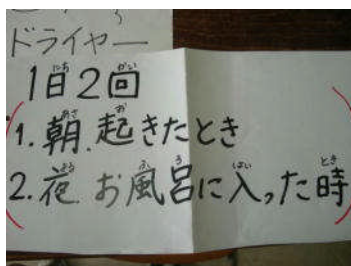 ドライヤー
1日2回
1.朝.起きたとき
2.夜 お風呂に入った時